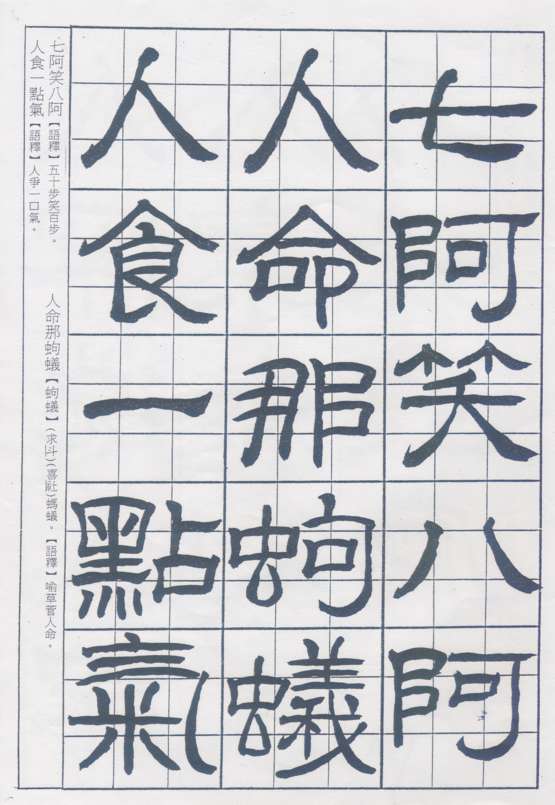 七阿笑八阿
人命那蚼蟻
人食一點氣
七阿笑八阿【語釋】五十步笑百步。
人食一點氣【語釋】人爭一口氣。
人命那蚼蟻【蚼蟻】(求斗)(喜)螞蟻。【語釋】喻草菅人命。